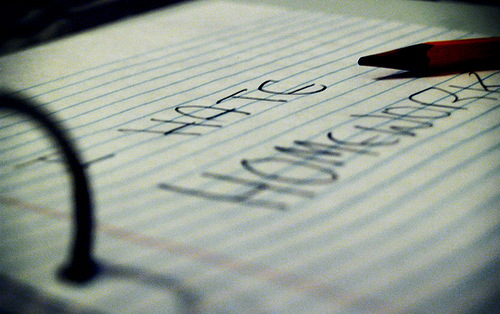 I HATE
HOMEWORK